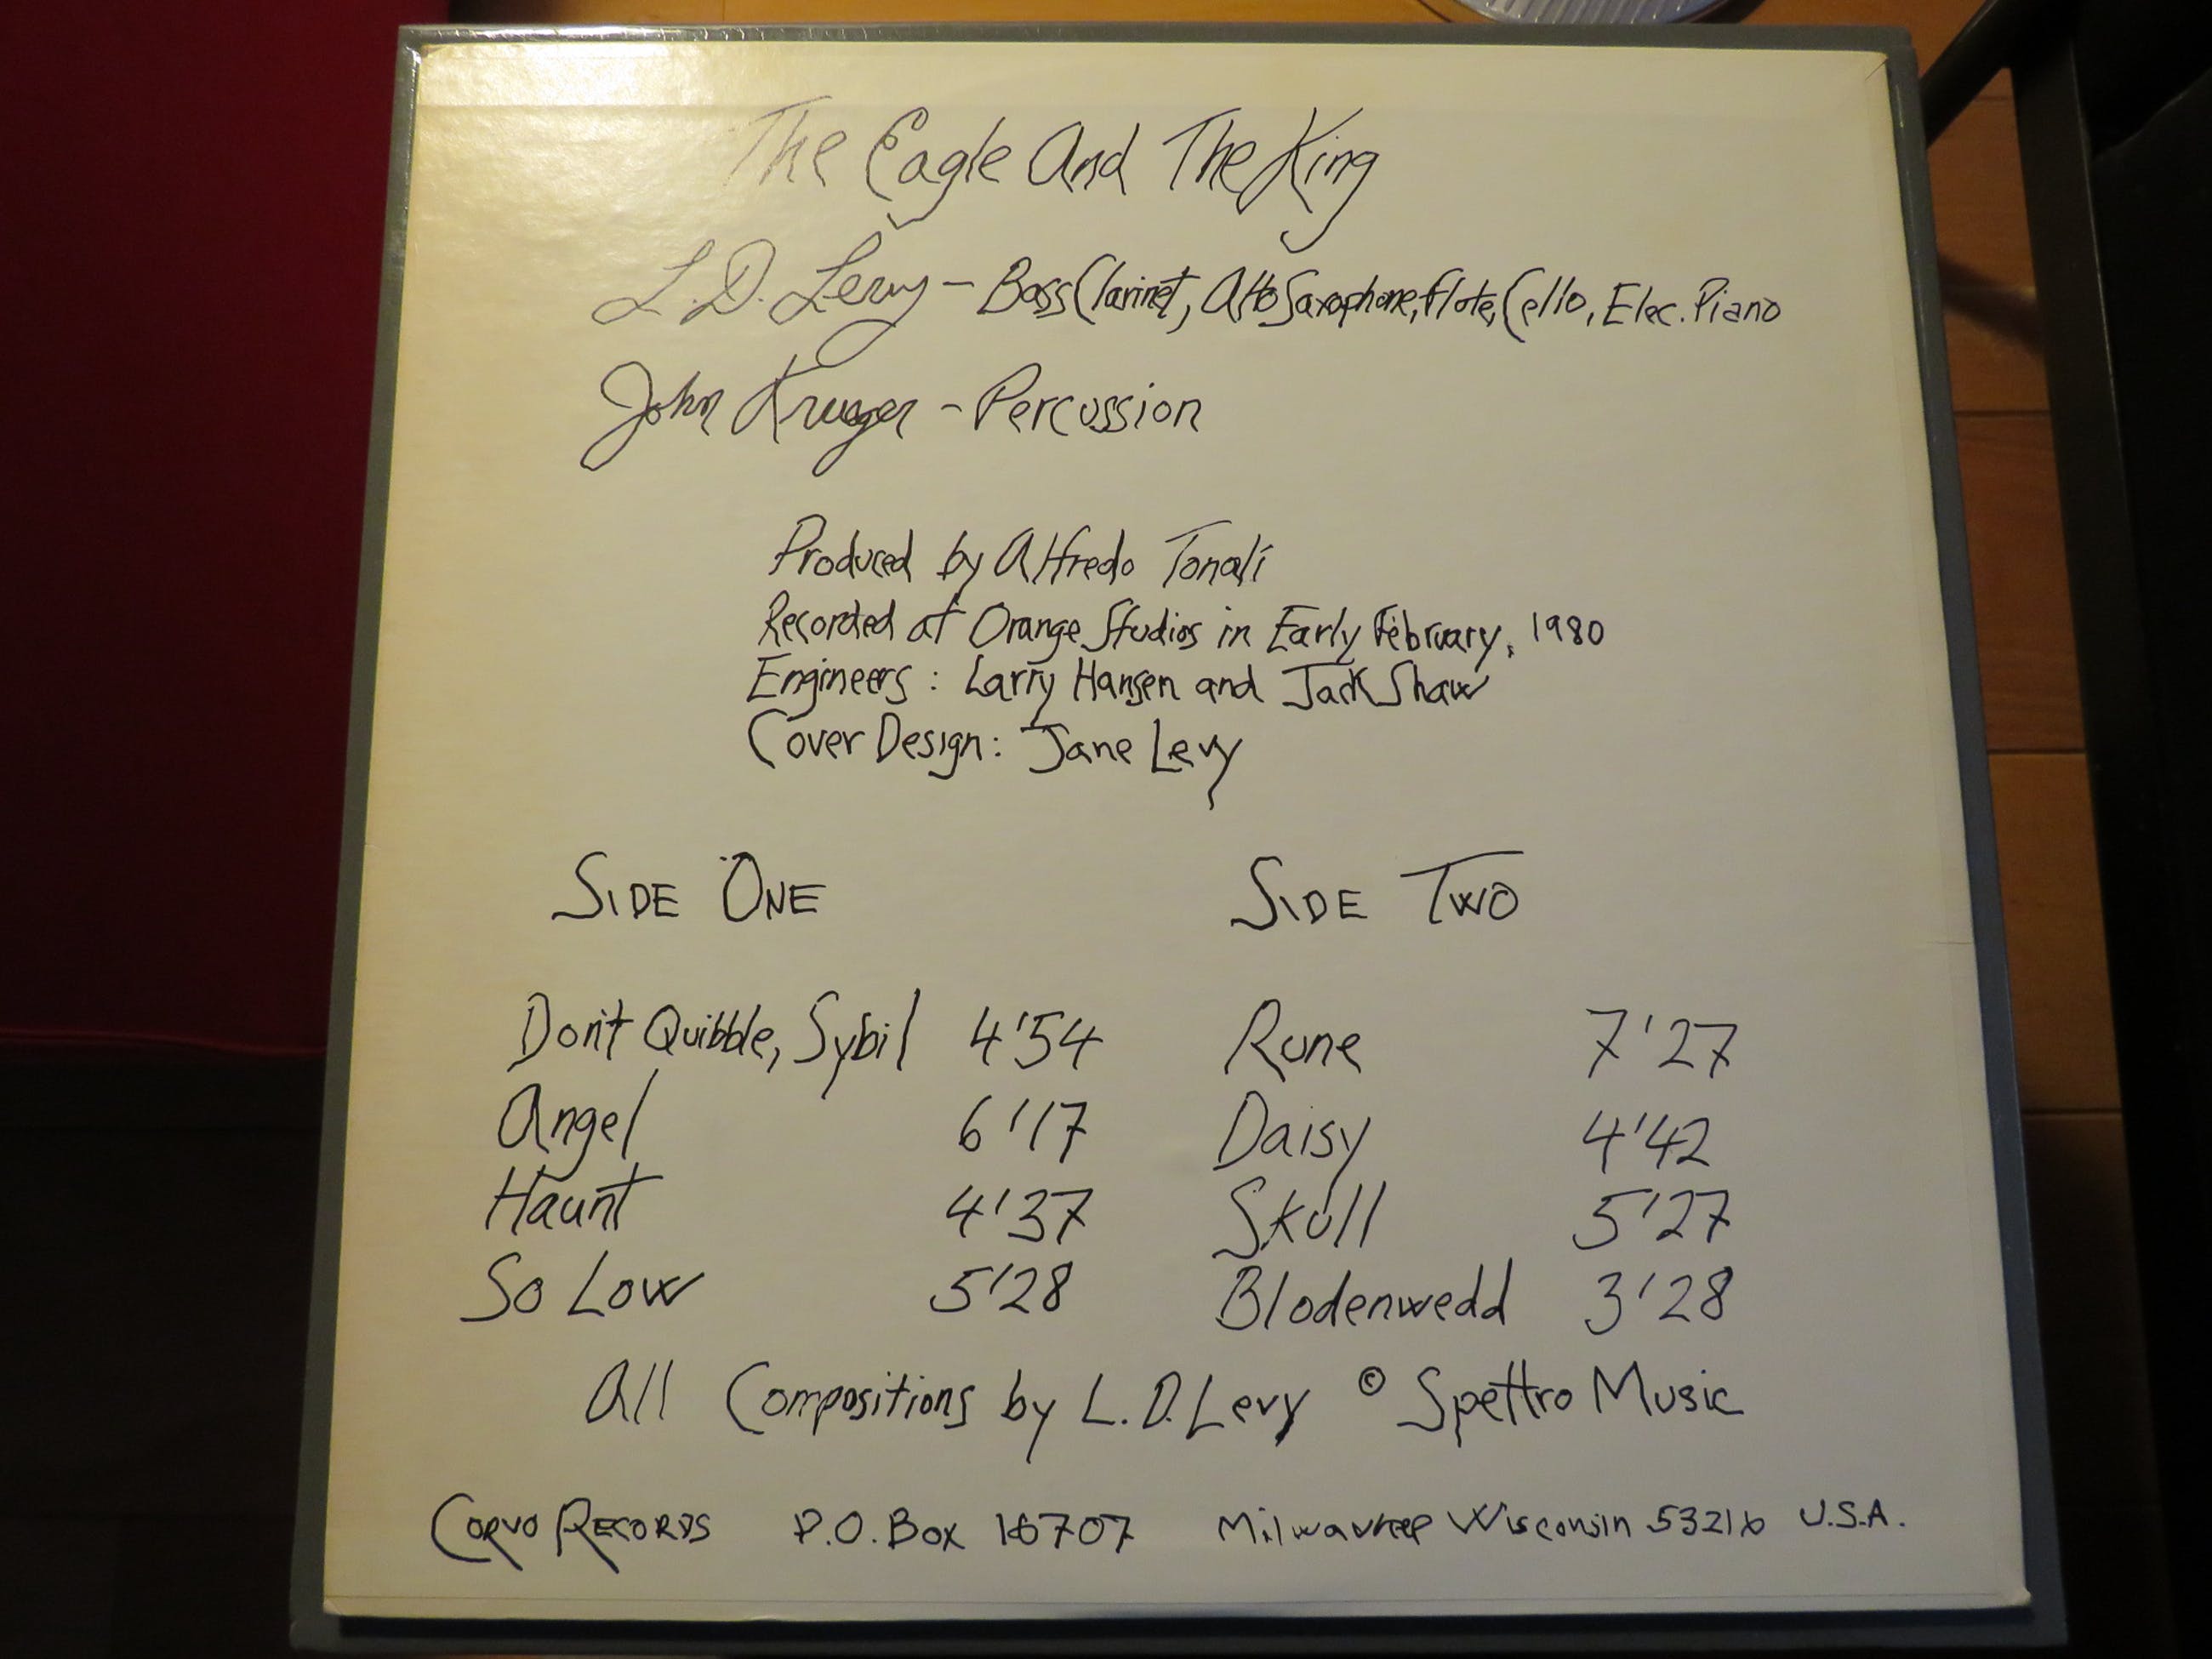 The Eagle And The King
L.D. Levy - Bass Clarinet, Alto Saxophone, Flute, Cello, Elec. Piano
John Krueger - Percussion
Produced by Alfredo Tonali
Recorded at Orange Studios in Early February, 1980
Engineers: Larry Hansen and Jack Shaw
Cover Design: Jane Levy
SIDE ONE SIDE TWO
Don't Quibble, Sybil 4'54 Rune 7'27
Angel 6'17 Daisy 4'42
Haunt 4'37 Skull 5'27
So Low 5'28 Blodenwedd 3'28
All Compositions by L.D. Levy © Spettro Music
CORVO RECORDS P.O. Box 16707 Milwaukee Wisconsin 53216 U.S.A.